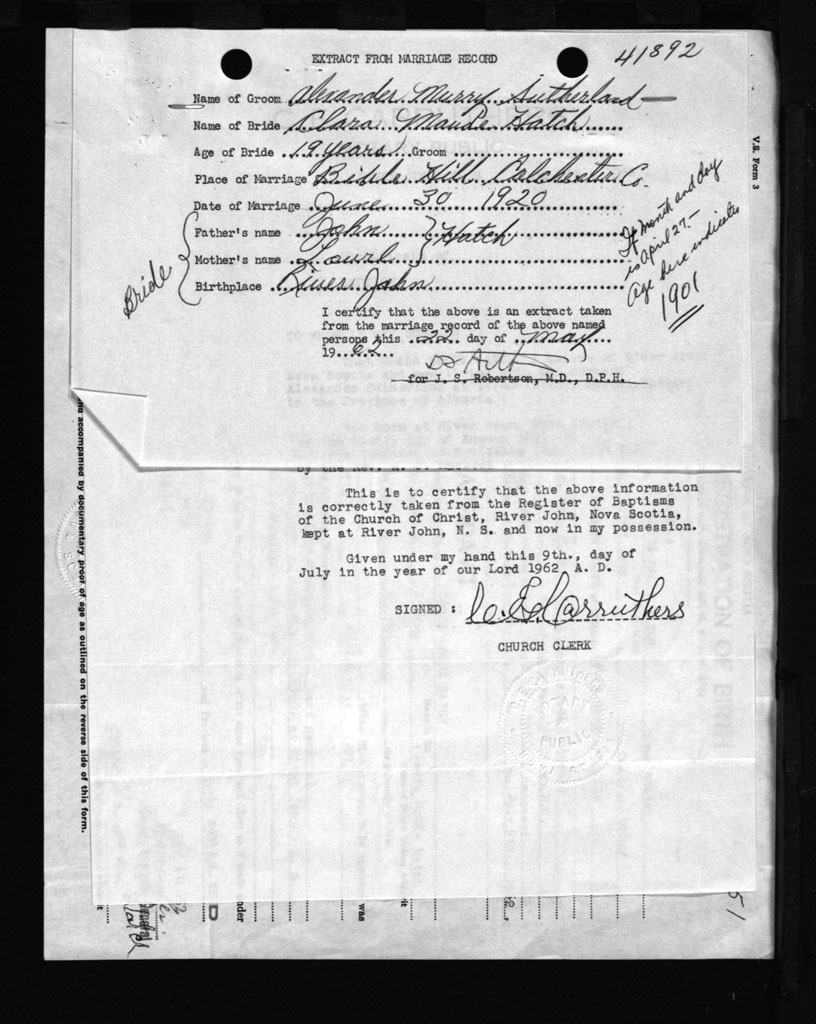 41892
EXTRACT FROM MARRIAGE RECORD
Name of Groom Alexander Murry Sutherland
Name of Bride Clara Maude Hatch
Age of Bride 19 years Groom
Place of Marriage Bible Hill Colchester Co.
Date of Marriage June 30 1920
Father's name John } Hatch
Mother's name
Birthplace River John
Bride {
If month and day
is April 27 —
age here indicates
1901
I certify that the above is an extract taken
from the marriage record of the above named
persons this 22 day of May
19 62
for J. S. Robertson, M.D., D.P.H.
V.S. Form 3
by the Rev.
This is to certify that the above information
is correctly taken from the Register of Baptisms
of the Church of Christ, River John, Nova Scotia,
kept at River John, N. S. and now in my possession.
Given under my hand this 9th., day of
July in the year of our Lord 1962 A. D.
SIGNED : Carruthers
CHURCH CLERK
NOTARY
PUBLIC
and accompanied by documentary proof of age as outlined on the reverse side of this form.
51
was
it
nder
D